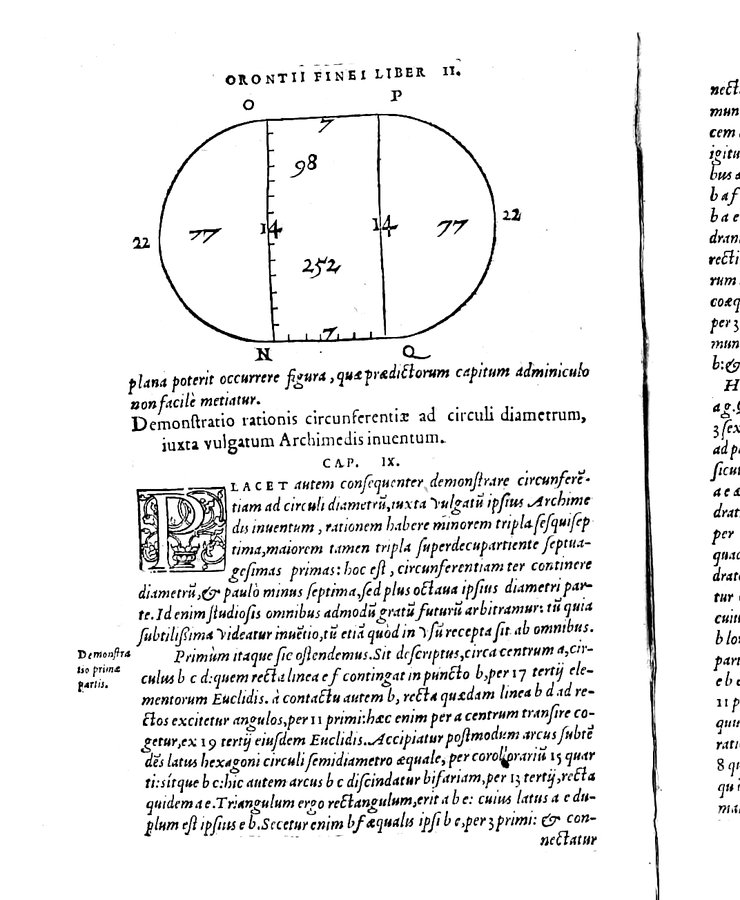 ORONTII FINEI LIBER II.
O P
7
98
22 77 14 14 77 22
252
7
N Q
plana poterit occurrere figura, quæ prædictorum capitum adminiculo
non facilè metiatur.
Demonstratio rationis circunferentiæ ad circuli diametrum,
iuxta vulgatum Archimedis inuentum.
CAP. IX.
PLACET autem consequenter demonstrare circunferē-
tiam ad circuli diametrū, iuxta vulgatū ipsius Archime
dis inuentum, rationem habere minorem tripla sesquisep
tima, maiorem tamen tripla superdecupartiente septua-
gesimas primas: hoc est, circunferentiam ter continere
diametrū, & paulò minus septima, sed plus octaua ipsius diametri par-
te. Id enim studiosis omnibus admodū gratū futurū arbitramur: tū quia
subtilissima videatur inuētio, tū etiā quòd in vsū recepta sit ab omnibus.
Demonstra
tio primæ
partis.
Primùm itaque sic ostendemus. Sit descriptus, circa centrum a, cir-
culus b c d: quem recta linea e f contingat in puncto b, per 17 tertij ele-
mentorum Euclidis. à contactu autem b, recta quædam linea b d ad re-
ctos excitetur angulos, per 11 primi: hæc enim per a centrum transire co-
getur, ex 19 tertij eiusdem Euclidis. Accipiatur postmodum arcus subtē
dēs latus hexagoni circuli semidiametro æquale, per corollorariū 15 quar
ti: sítque b c: hic autem arcus b c discindatur bifariam, per 13 tertij, recta
quidem a e. Triangulum ergo rectangulum, erit a b e: cuius latus a e du-
plum est ipsius e b. Secetur enim b f æqualis ipsi b e, per 3 primi: & con-
nectatur
nect
mun
cem
igitu
bus a
b a f
b a e
dran
recti
rum
coæq
per 3
mun
b: &
H
a g.
3 sex
ad p
sicut
a e a
drat
per
quad
drat
tur
cuiu
b lo
part
e b e
11 p
quin
rati
8 qu
qu i
mai